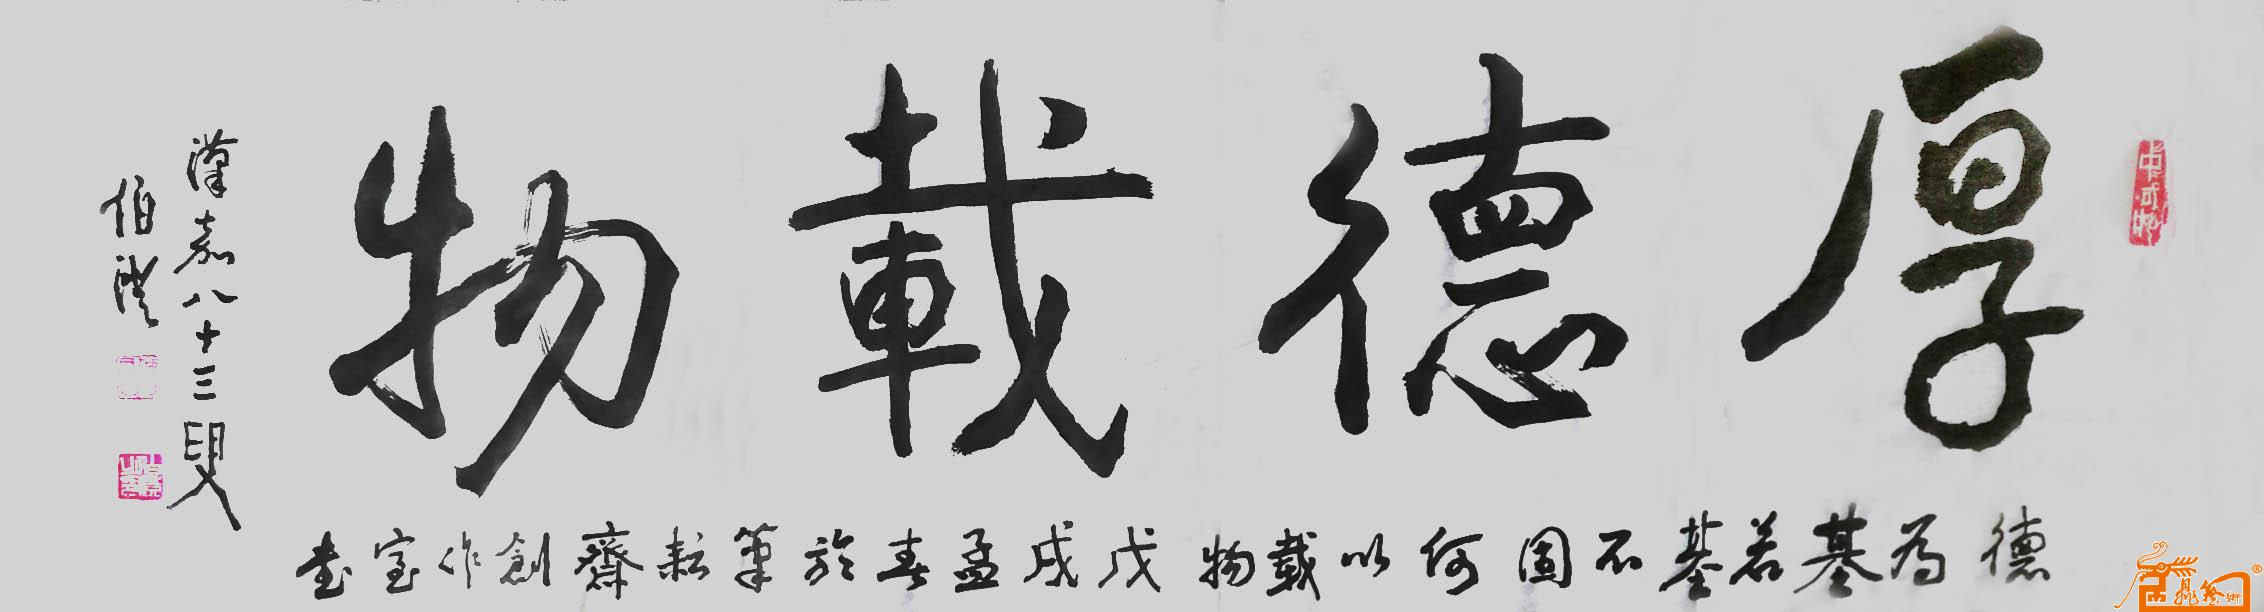 厚德載物
德為基若基不固何以載物戊戌孟春於筆耘齋創作室书
漢嘉八十三叟
伯濙